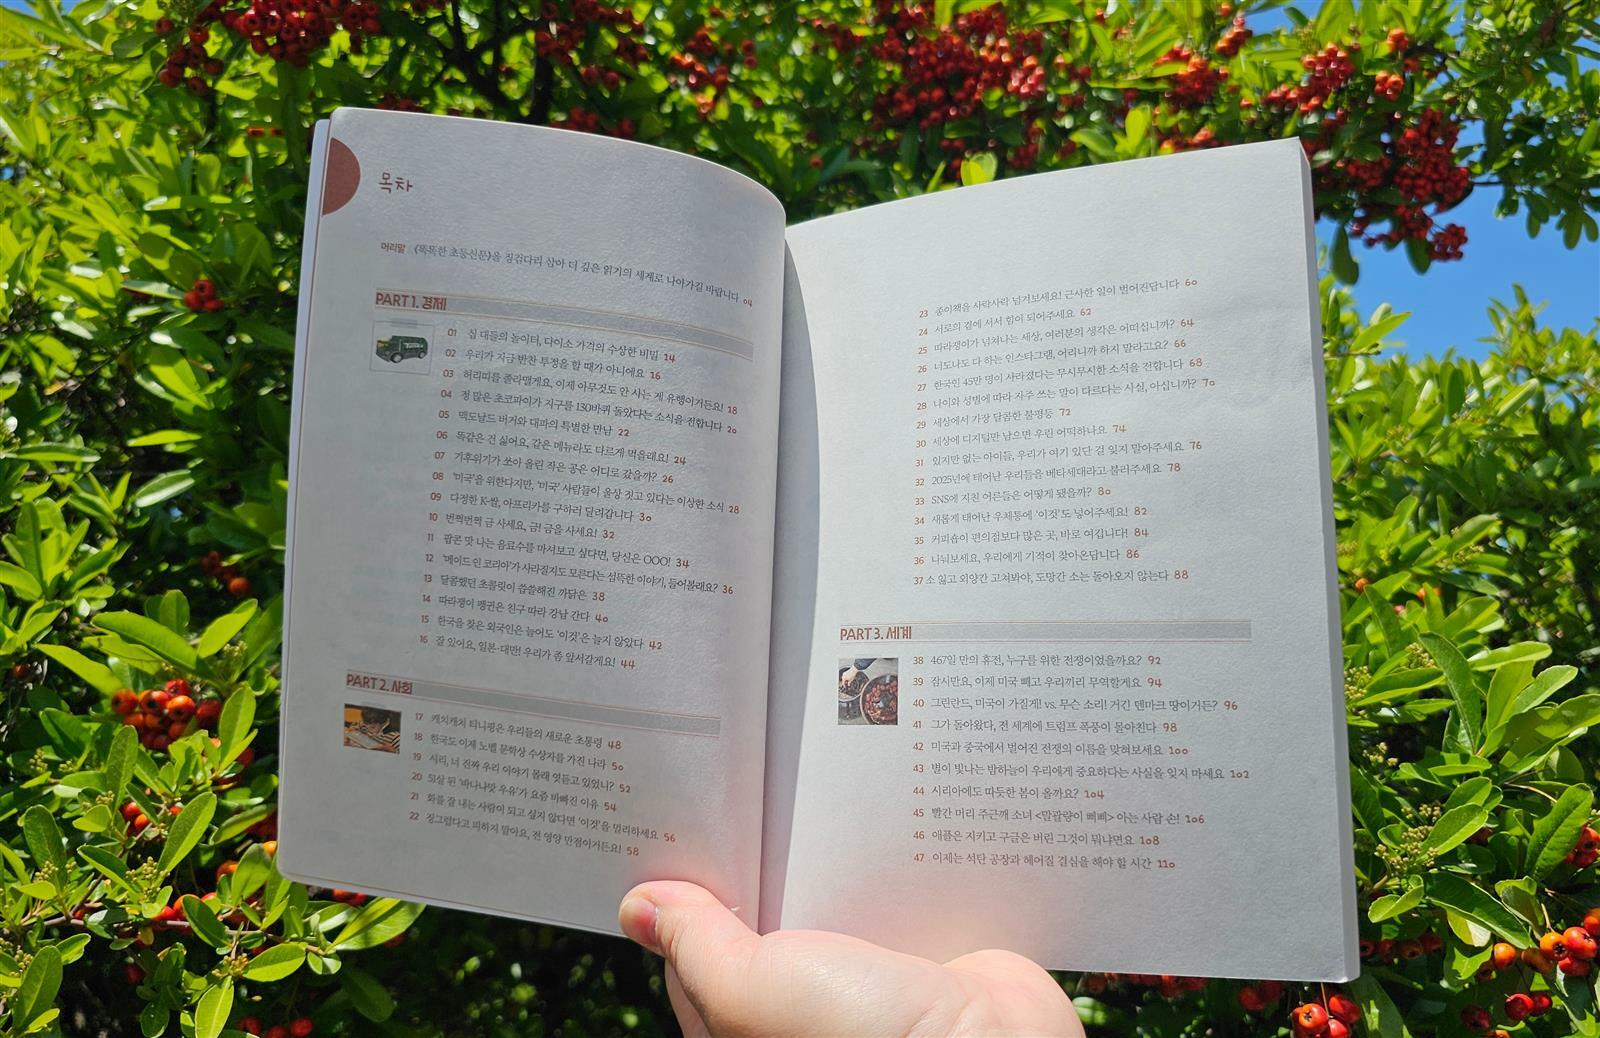 목차
머리말 《똑똑한 초등신문》을 징검다리 삼아 더 깊은 읽기의 세계로 나아가길 바랍니다 04
PART 1. 경제
01 십 대들의 놀이터, 다이소 가격의 수상한 비밀 14
02 우리가 지금 반찬 투정을 할 때가 아니에요 16
03 허리띠를 졸라맬게요, 이제 아무것도 안 사는 게 유행이거든요! 18
04 정 많은 초코파이가 지구를 130바퀴 돌았다는 소식을 전합니다 20
05 맥도날드 버거와 대파의 특별한 만남 22
06 똑같은 건 싫어요, 같은 메뉴라도 다르게 먹을래요! 24
07 기후위기가 쏘아 올린 작은 공은 어디로 갔을까? 26
08 '미국'을 위한다지만, '미국' 사람들이 울상 짓고 있다는 이상한 소식 28
09 다정한 K-쌀, 아프리카를 구하러 달려갑니다 30
10 번쩍번쩍 금 사세요, 금! 금을 사세요! 32
11 팝콘 맛 나는 음료수를 마셔보고 싶다면, 당신은 OOO! 34
12 '메이드 인 코리아'가 사라질지도 모른다는 섬뜩한 이야기, 들어볼래요? 36
13 달콤했던 초콜릿이 씁쓸해진 까닭은 38
14 따라쟁이 펭귄은 친구 따라 강남 간다 40
15 한국을 찾은 외국인은 늘어도 '이것'은 늘지 않았다 42
16 잘 있어요, 일본·대만! 우리가 좀 앞서갈게요! 44
PART 2. 사회
17 캐치캐치 티니핑은 우리들의 새로운 초통령 48
18 한국도 이제 노벨 문학상 수상자를 가진 나라 50
19 시리, 너 진짜 우리 이야기 몰래 엿듣고 있었니? 52
20 51살 된 '바나나맛 우유'가 요즘 바빠진 이유 54
21 화를 잘 내는 사람이 되고 싶지 않다면 '이것'을 멀리하세요 56
22 징그럽다고 피하지 말아요, 전 영양 만점이거든요! 58
23 종이책을 사락사락 넘겨보세요! 근사한 일이 벌어진답니다 60
24 서로의 곁에 서서 힘이 되어주세요 62
25 따라쟁이가 넘쳐나는 세상, 여러분의 생각은 어떠십니까? 64
26 너도나도 다 하는 인스타그램, 어린이는 하지 말라고요? 66
27 한국인 45만 명이 사라졌다는 무시무시한 소식을 전합니다 68
28 나이와 성별에 따라 자주 쓰는 말이 다르다는 사실, 아십니까? 70
29 세상에서 가장 달콤한 불평등 72
30 세상에 디지털만 남으면 우린 어떡하나요 74
31 있지만 없는 아이들, 우리가 여기 있단 걸 잊지 말아주세요 76
32 2025년에 태어난 우리들을 베타세대라고 불러주세요 78
33 SNS에 지친 어른들은 어떻게 됐을까? 80
34 새롭게 태어난 우체통에 '이것'도 넣어주세요! 82
35 커피숍이 편의점보다 많은 곳, 바로 여깁니다! 84
36 나눠보세요, 우리에게 기적이 찾아온답니다 86
37 소 잃고 외양간 고쳐봐야, 도망간 소는 돌아오지 않는다 88
PART 3. 세계
38 467일 만의 휴전, 누구를 위한 전쟁이었을까요? 92
39 잠시만요, 이제 미국 빼고 우리끼리 무역할게요 94
40 그린란드, 미국이 가질게! vs. 무슨 소리! 거긴 덴마크 땅이거든? 96
41 그가 돌아왔다, 전 세계에 트럼프 폭풍이 몰아친다 98
42 미국과 중국에서 벌어진 전쟁의 이름을 맞혀보세요 100
43 별이 빛나는 밤하늘이 우리에게 중요하다는 사실을 잊지 마세요 102
44 시리아에도 따듯한 봄이 올까요? 104
45 빨간 머리 주근깨 소녀 <말괄량이 삐삐> 아는 사람 손! 106
46 애플은 지키고 구글은 버린 그것이 뭐냐면요 108
47 이제는 석탄 공장과 헤어질 결심을 해야 할 시간 110